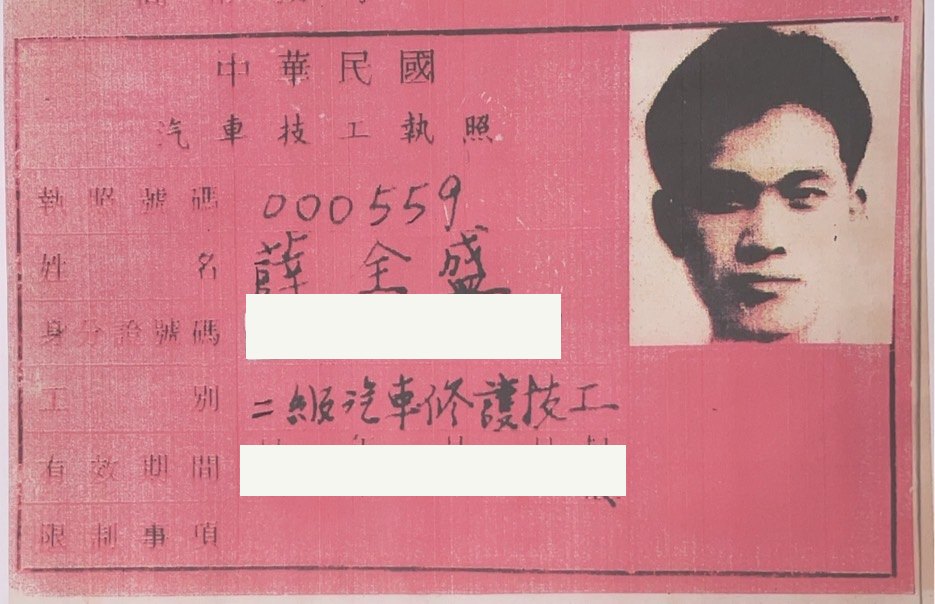 中華民國
汽車技工執照
執照號碼 000559
姓名 薛全盛
身分證號碼
工別 二級汽車修護技工
有效期間
限制事項